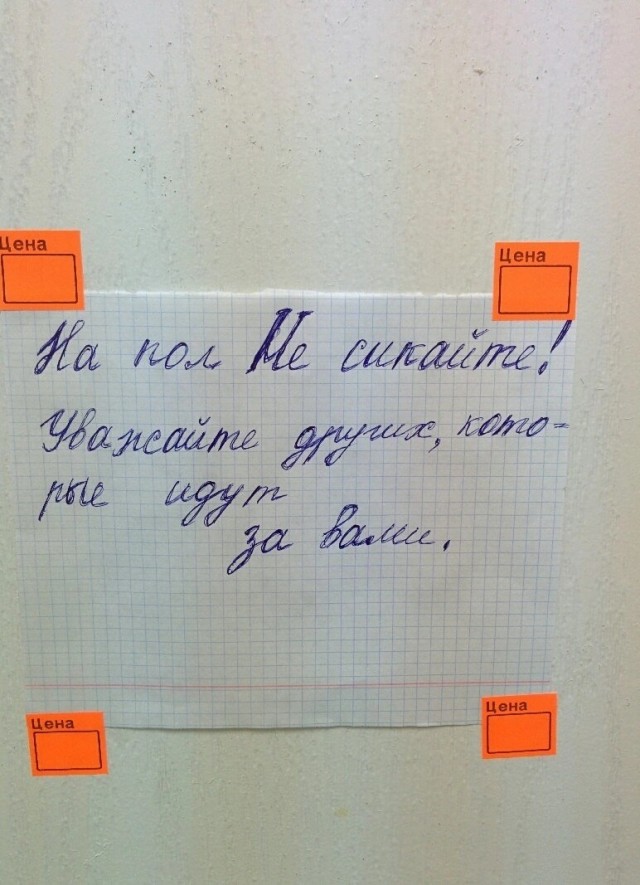 Цена
Цена
На пол Не сикайте!
Уважайте других, кото-
рые идут
за вами.
Цена
Цена